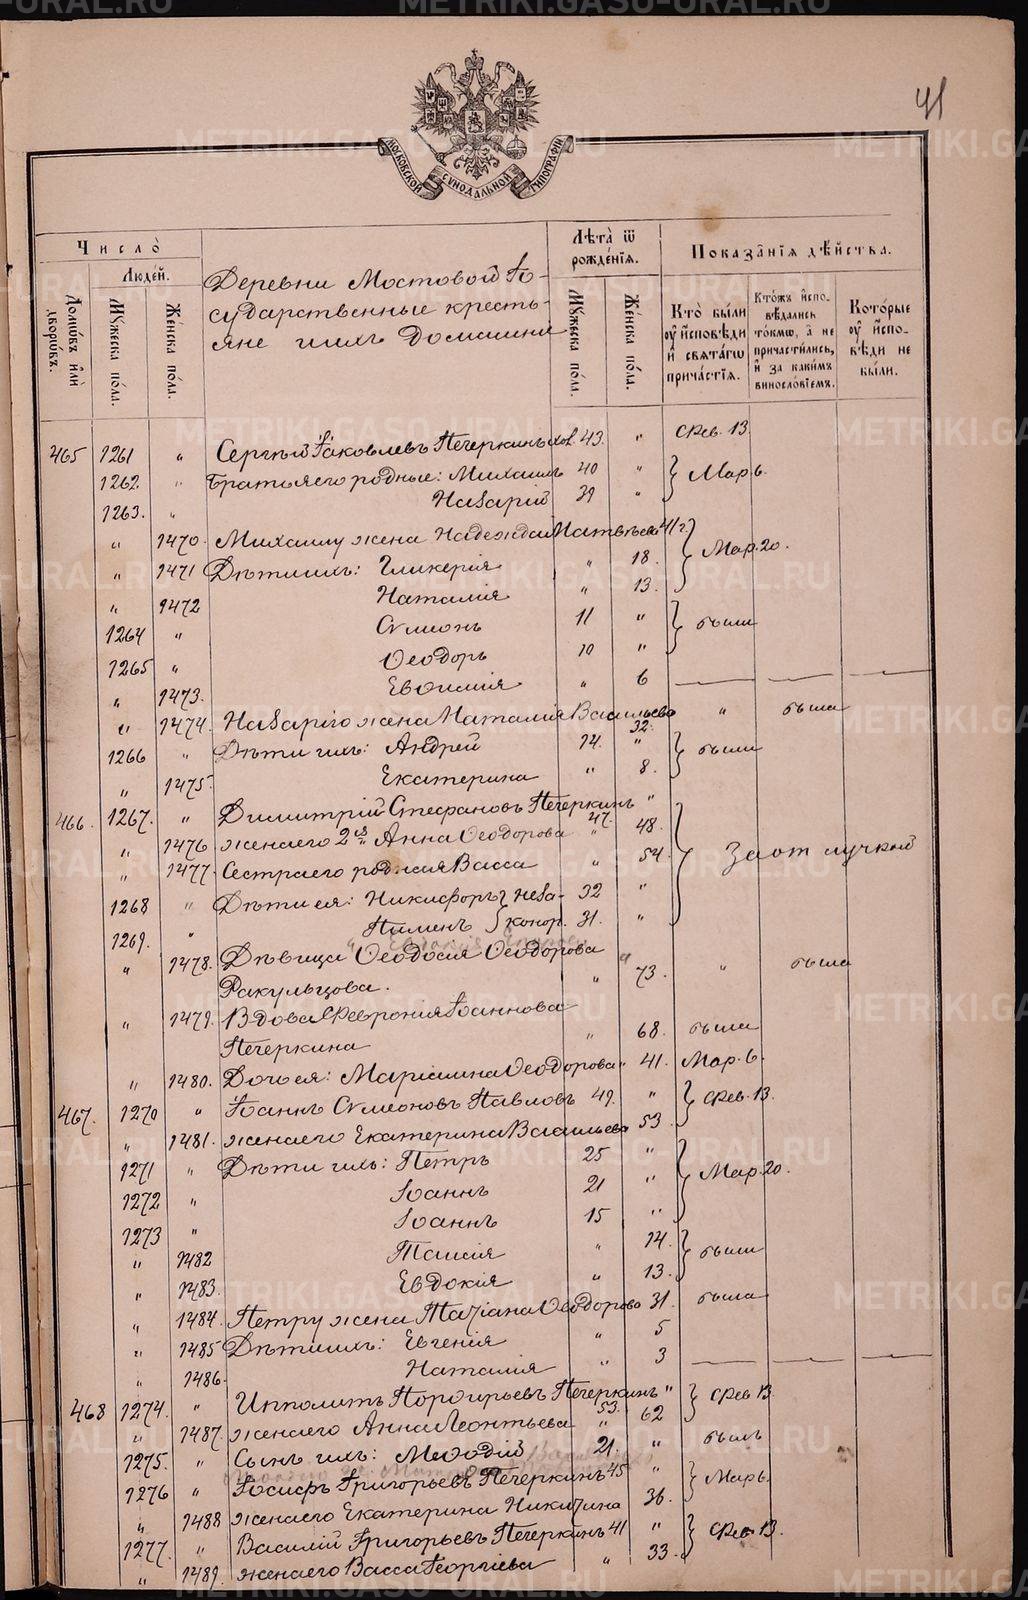 41
МОСКОВСКОЙ СУНОДАЛЬНОЙ ТИПОГРАФІИ
Число̀
Людей.
Домѡвъ илѝ дворѡвъ.
Мужеска по́ла.
Же́нска по́ла.
Деревни Мостовой Го-
сударственные кресть-
яне и ихъ домашніе
Лѣта̀ ѿ рожде́нїѧ.
Мужеска по́ла.
Же́нска по́ла.
Показа̑нїѧ дѣ́йства.
Кто̀ бы́ли ᲂу҆ и҆сповѣди и҆ свѧта́гѡ прича́стїѧ.
Кто́жъ и҆спо-вѣдались то́кмѡ, а҆ не причасти́лись, и҆ за каки́мъ винослѡ́вїемъ.
Кото́рые ᲂу҆ и҆спо-вѣди не бы́ли.
465 1261 " Сергѣй Іаковлевъ Печеркинъ хол. 43. " Фев. 13.
1262 " Братья его родные: Михаилъ 40 " Мар. 6.
1263. " Назарій 39 "
" 1470. Михаилу жена Надежда Матвѣева 41 г. Мар. 20.
" 1471 Дѣти ихъ: Гликерія " 18.
" 1472 Наталія " 13.
1264 " Симеонъ 11 " были
1265 " Ѳеодоръ 10 "
" 1473. Евѳимія " 6
" 1474. Назарію жена Наталія Васильева 32. " была
1266 " Дѣти ихъ: Андрей 14. " были
" 1475 Екатерина " 8.
466. 1267. " Димитрій Стефановъ Печеркинъ 47. " За отлучкой
" 1476 жена его 2я Анна Ѳеодорова " 48.
" 1477 Сестра его родная Васса " 54.
1268 " Дѣти ея: Никифоръ неза- 32 "
1269. " Пименъ конор. 31. "
" 1478. Дѣвица Ѳеодосія Ѳеодорова
Ракульцова. " 73. " была
" 1479. Вдова Феврония Іоаннова
Печеркина " 68. была
" 1480. Дочь ея: Маріамна Ѳеодорова " 41. Мар. 6.
467. 1270 " Іоаннъ Симеоновъ Павловъ 49. " Фев. 13.
" 1481. жена его Екатерина Васильева 53.
1271 " Дѣти ихъ: Петръ 25 " Мар. 20.
1272 " Іоаннъ 21 "
1273 " Іоаннъ 15 "
" 1482 Таисія " 14. были
" 1483. Евдокія " 13.
" 1484. Петру жена Татіана Ѳеодорова 31. была
" 1485 Дѣти ихъ: Евгенія " 5
" 1486. Наталія " 3
468 1274. " Ипполитъ Порфирьевъ Печеркинъ 53. " Фев 13.
" 1487. жена его Анна Леонтьева " 62
1275. " Сынъ ихъ: Меѳодій 21. " былъ
1276 " Іосифъ Григорьевъ Печеркинъ 45 " Мар 6.
" 1488 жена его Екатерина Никитина 36.
1277. " Василій Григорьевъ Печеркинъ 41 " Фев. 13.
" 1489. жена его Васса Георгіева " 33.
METRIKI.GASO-URAL.RU